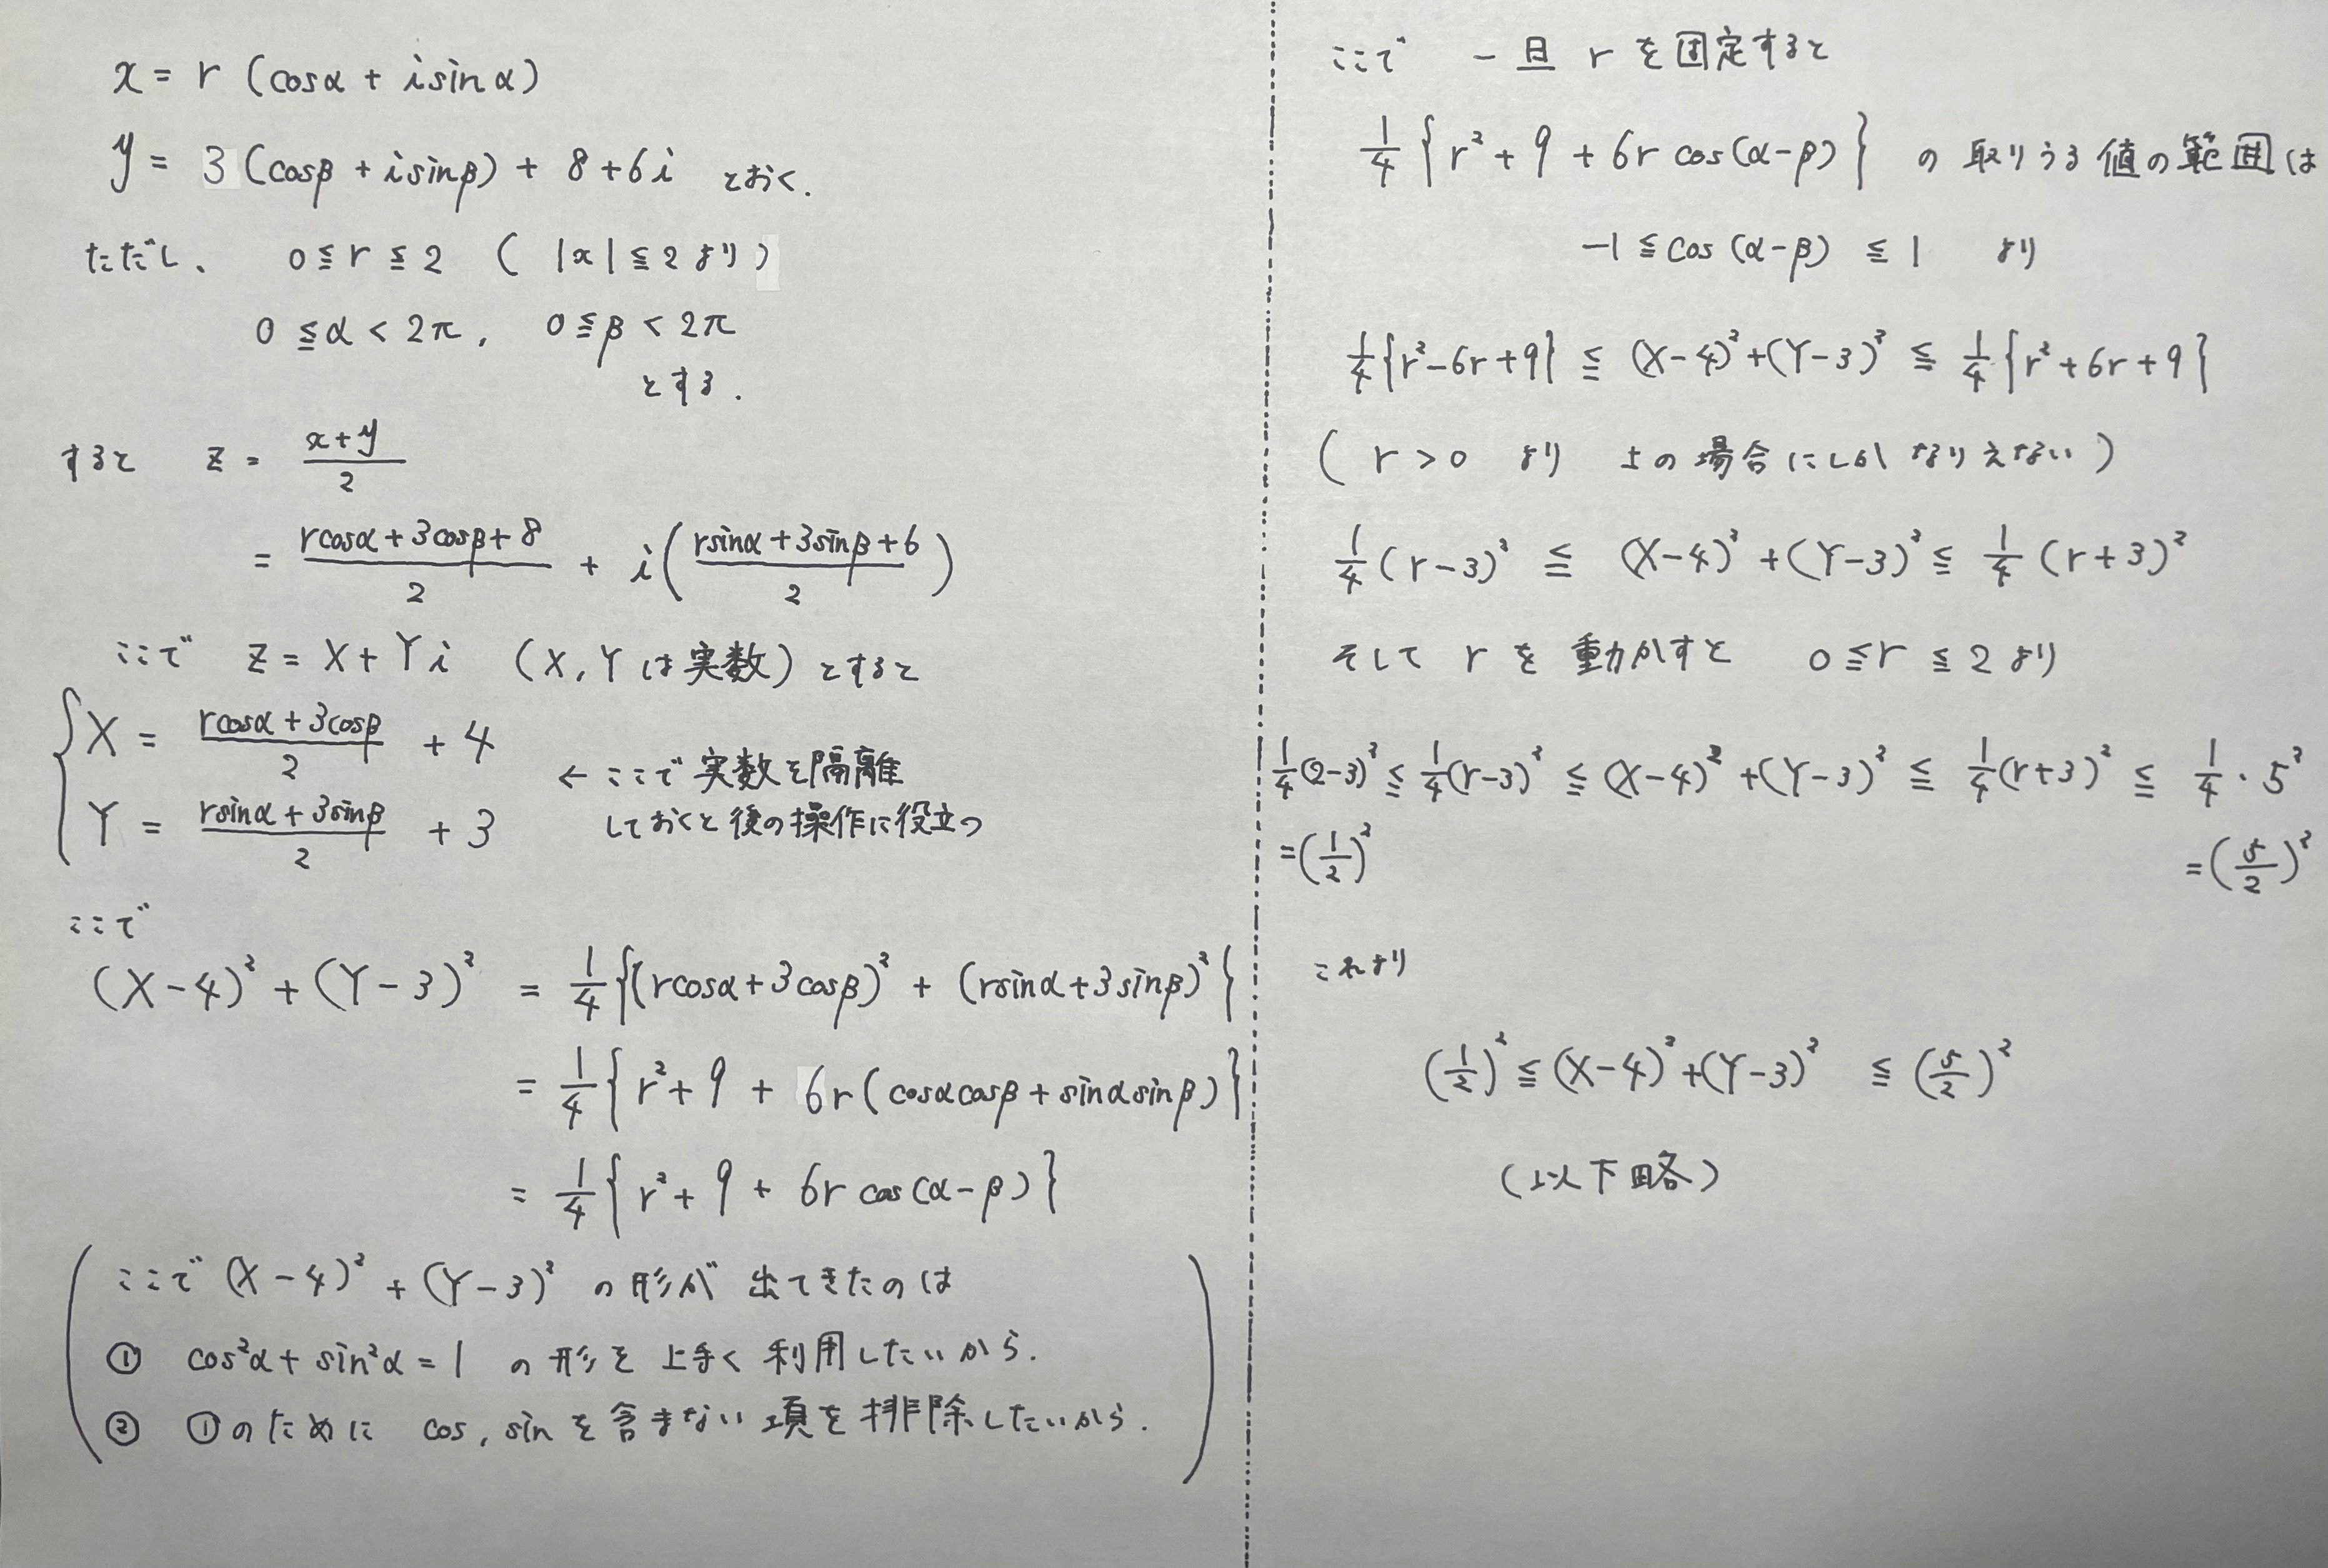 x = r (cosα + i sinα)
y = 3 (cosβ + i sinβ) + 8+6i とおく.
ただし、 0 ≦ r ≦ 2 ( |x| ≦ 2 より )
0 ≦ α < 2π, 0 ≦ β < 2π
とする.
すると z = \frac{x+y}{2}
= \frac{rcosα + 3cosβ + 8}{2} + i(\frac{rsinα + 3sinβ + 6}{2})
ここで z = X + Yi (X, Y は実数) とすると
{ X = \frac{rcosα + 3cosβ}{2} + 4
Y = \frac{rsinα + 3sinβ}{2} + 3
← ここで実数を隔離
しておくと後の操作に役立つ
ここで
(X-4)² + (Y-3)² = \frac{1}{4}{(rcosα + 3cosβ)² + (rsinα + 3sinβ)²}
= \frac{1}{4}{r² + 9 + 6r(cosαcosβ + sinαsinβ)}
= \frac{1}{4}{r² + 9 + 6r cos(α-β)}
( ここで (X-4)² + (Y-3)² の形が出てきたのは
① cos²α + sin²α = 1 の形を上手く利用したいから.
② ①のために cos, sin を含まない項を排除したいから. )
ここで 一旦 r を固定すると
\frac{1}{4}{r² + 9 + 6r cos(α-β)} の取りうる値の範囲は
-1 ≦ cos(α-β) ≦ 1 より
\frac{1}{4}{r² - 6r + 9} ≦ (X-4)² + (Y-3)² ≦ \frac{1}{4}{r² + 6r + 9}
( r > 0 より 上の場合にしかなりえない )
\frac{1}{4}(r-3)² ≦ (X-4)² + (Y-3)² ≦ \frac{1}{4}(r+3)²
そして r を動かすと 0 ≦ r ≦ 2 より
\frac{1}{4}(2-3)² ≦ \frac{1}{4}(r-3)² ≦ (X-4)² + (Y-3)² ≦ \frac{1}{4}(r+3)² ≦ \frac{1}{4}・5²
= (\frac{1}{2})² = (\frac{5}{2})²
これより
(\frac{1}{2})² ≦ (X-4)² + (Y-3)² ≦ (\frac{5}{2})²
(以下略)